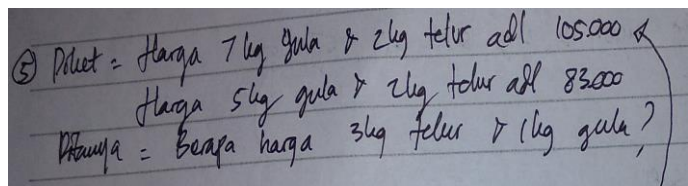 ⑤ Diket = Harga 7 kg gula & 2 kg telur adl 105.000
Harga 5 kg gula & 2 kg telur adl 83.000
Ditanya = Berapa harga 3 kg telur & 1 kg gula?